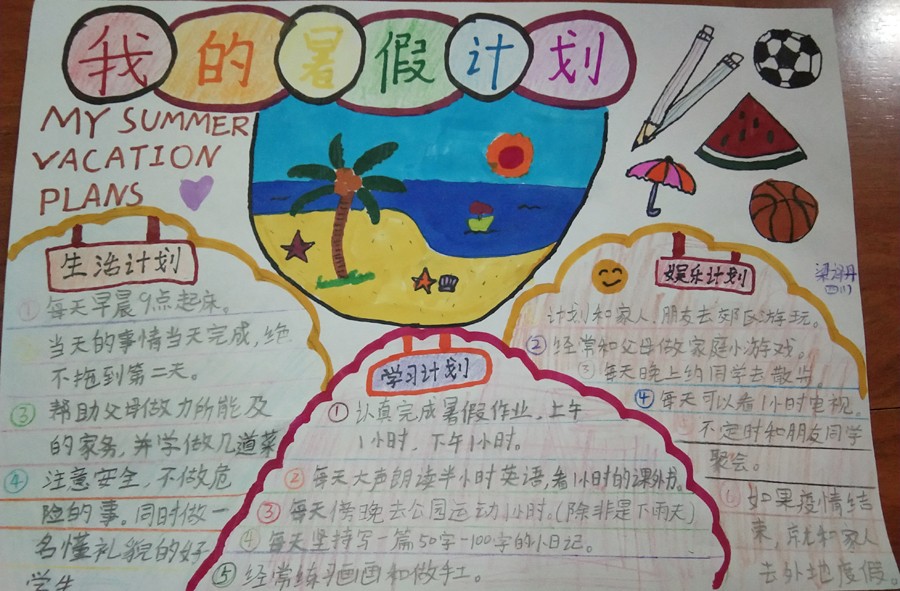 我的暑假计划
MY SUMMER
VACATION
PLANS
生活计划
①每天早晨9点起床。
当天的事情当天完成，绝
不拖到第二天。
③帮助父母做力所能及
的家务，并学做几道菜
④注意安全，不做危
险的事。同时做一
名懂礼貌的好
学生
学习计划
①认真完成暑假作业，上午
1小时，下午1小时。
②每天大声朗读半小时英语，看1小时的课外书。
③每天傍晚去公园运动1小时。(除非是下雨天)
④每天坚持写一篇50字-100字的小日记。
⑤经常练习画画和做手工。
娱乐计划
四川
计划和家人、朋友去郊区游玩。
②经常和父母做家庭小游戏。
③每天晚上约同学去散步。
④每天可以看1小时电视。
⑤不定时和朋友同学
聚会。
⑥如果疫情结
束，就和家人
去外地度假。